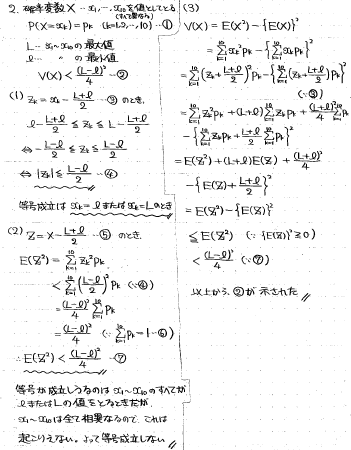 2. 確率変数X … x₁, …, x₁₀ を値としてとる
(すべて異なる)
P(X=xₖ) = pₖ (k=1,2,…,10) …①
L … x₁~x₁₀ の最大値
ℓ … 〃 の最小値
V(X) < (L-ℓ)²/4 …②
(1) zₖ = xₖ - (L+ℓ)/2 …③ のとき,
ℓ - (L+ℓ)/2 ≦ zₖ ≦ L - (L+ℓ)/2
⇔ -(L-ℓ)/2 ≦ zₖ ≦ (L-ℓ)/2
⇔ |zₖ| ≦ (L-ℓ)/2 …④
等号成立は xₖ = ℓ または xₖ = L のとき
(2) Z = X - (L+ℓ)/2 …⑤ のとき,
E(Z²) = Σ[k=1→10] zₖ² pₖ
< Σ[k=1→10] ((L-ℓ)/2)² pₖ (∵④)
= (L-ℓ)²/4 Σ[k=1→10] pₖ
= (L-ℓ)²/4 (∵ Σ[k=1→10] pₖ = 1 …⑥)
∴ E(Z²) < (L-ℓ)²/4 …⑦
等号が成立しうるのは x₁~x₁₀ のすべてが
ℓ または L の値をとるときだが,
x₁~x₁₀ は全て相異なるので, これは
起こりえない。よって等号成立しない //
(3)
V(X) = E(X²) - {E(X)}²
= Σ[k=1→10] xₖ² pₖ - {Σ[k=1→10] xₖ pₖ}²
= Σ[k=1→10] (zₖ + (L+ℓ)/2)² pₖ - {Σ[k=1→10] (zₖ + (L+ℓ)/2) pₖ}²
(∵③)
= Σ[k=1→10] zₖ² pₖ + (L+ℓ) Σ[k=1→10] zₖ pₖ + (L+ℓ)²/4 Σ[k=1→10] pₖ
- {Σ[k=1→10] zₖ pₖ + (L+ℓ)/2 Σ[k=1→10] pₖ}²
= E(Z²) + (L+ℓ)E(Z) + (L+ℓ)²/4
- {E(Z) + (L+ℓ)/2}²
= E(Z²) - {E(Z)}²
≦ E(Z²) (∵ {E(Z)}² ≧ 0)
< (L-ℓ)²/4 (∵⑦)
以上から, ②が示された //